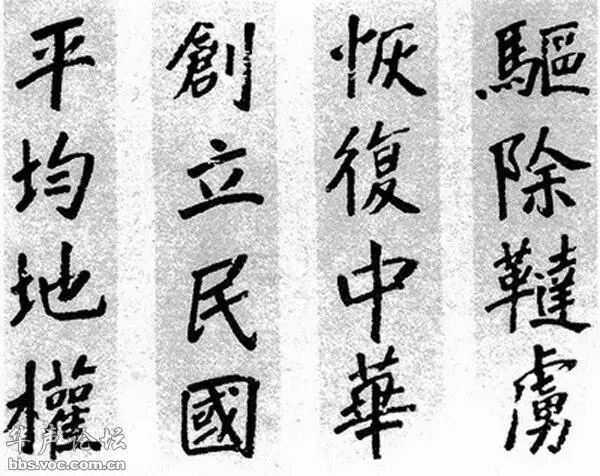 驅除韃虜
恢復中華
創立民國
平均地權
华声论坛
bbs.voc.com.cn